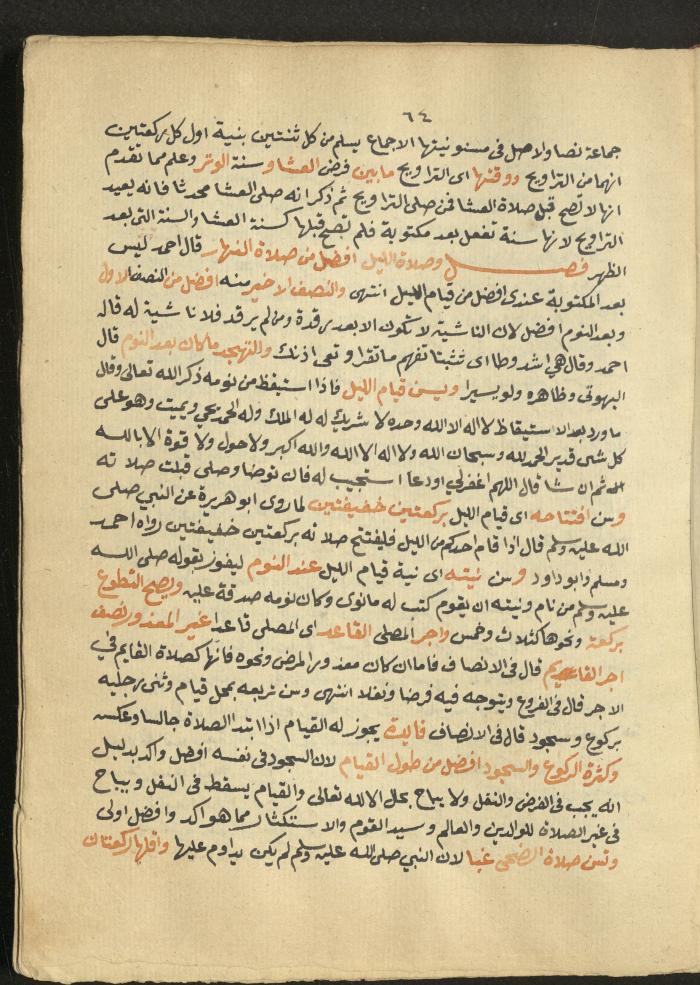 ٦٤
جماعة نصا والاصل في مسنونيتها الاجماع يسلم من كل ثنتين بنية اول كل ركعتين
انهما من التراويح ووقتها اى التراويح ما بين فرض العشا وسنة الوتر وعلم مما تقدم
انها لا تصح قبل صلاة العشا فمن صلى التراويح ثم ذكر انه صلى العشا محدثا فانه يعيد
التراويح لانها سنة تفعل بعد مكتوبة فلم تصح قبلها كسنة العشا والسنة التى بعد
الظهر فصل وصلاة الليل افضل من صلاة النهار قال احمد ليس
بعد المكتوبة عندى افضل من قيام الليل انتهى والنصف الاخير منه افضل من النصف الاول
وبعد النوم افضل لان الناشية لا تكون الا بعد رقدة ومن لم يرقد فلا ناشية له قاله
احمد وقال هي اشد وطا اى تثبتا تفهم ما تقرا وتعى اذنك والتهجد ما كان بعد النوم قال
البهوتى وظاهره ولو يسيرا ويسن قيام الليل فاذا استيقظ من نومه ذكر الله تعالى وقال
ما ورد بعد الاستيقاظ لا اله الا الله وحده لا شريك له له الملك وله الحمد يحي ويميت وهو على
كل شى قدير الحمد لله وسبحان الله ولا اله الا الله والله اكبر ولا حول ولا قوة الا بالله
ثم ان شا قال اللهم اغفر لي او دعا استجيب له فان توضا وصلى قبلت صلاته
وسن افتتاحه اى قيام الليل بركعتين خفيفتين لما روى ابو هريرة عن النبي صلى
الله عليه وسلم قال اذا قام احدكم من الليل فليفتتح صلاته بركعتين خفيفتين رواه احمد
ومسلم وابو داود وسن نيته اى نية قيام الليل عند النوم ليفوز بقوله صلى الله
عليه وسلم من نام ونيته ان يقوم كتب له ما نوى وكان نومه صدقة عليه ويصح التطوع
بركعة ونحوها كثلاث وخمس واجر المصلى القاعد اى المصلى قاعدا غير المعذور نصف
اجر القايم قال في الانصاف فاما ان كان معذورا لمرض ونحوه فانها كصلاة القايم في
الاجر قال في الفروع ويتوجه فيه فرضا ونفلا انتهى وسن تربعه بمحل قيام وثنى رجليه
بركوع وسجود قال في الانصاف فايدة يجوز له القيام اذا ابتدا الصلاة جالسا وعكسه
وكثرة الركوع والسجود افضل من طول القيام لان السجود في نفسه افضل واكد بدليل
انه يجب في الفرض والنفل ولا يباح بحال الا لله تعالى والقيام يسقط في النفل ويباح
في غير الصلاة للوالدين والعالم وسيد القوم والاستكثار مما هو اكد وافضل اولى
وتسن صلاة الضحى غبا لان النبي صلى الله عليه وسلم لم يكن يداوم عليها واقلها ركعتان